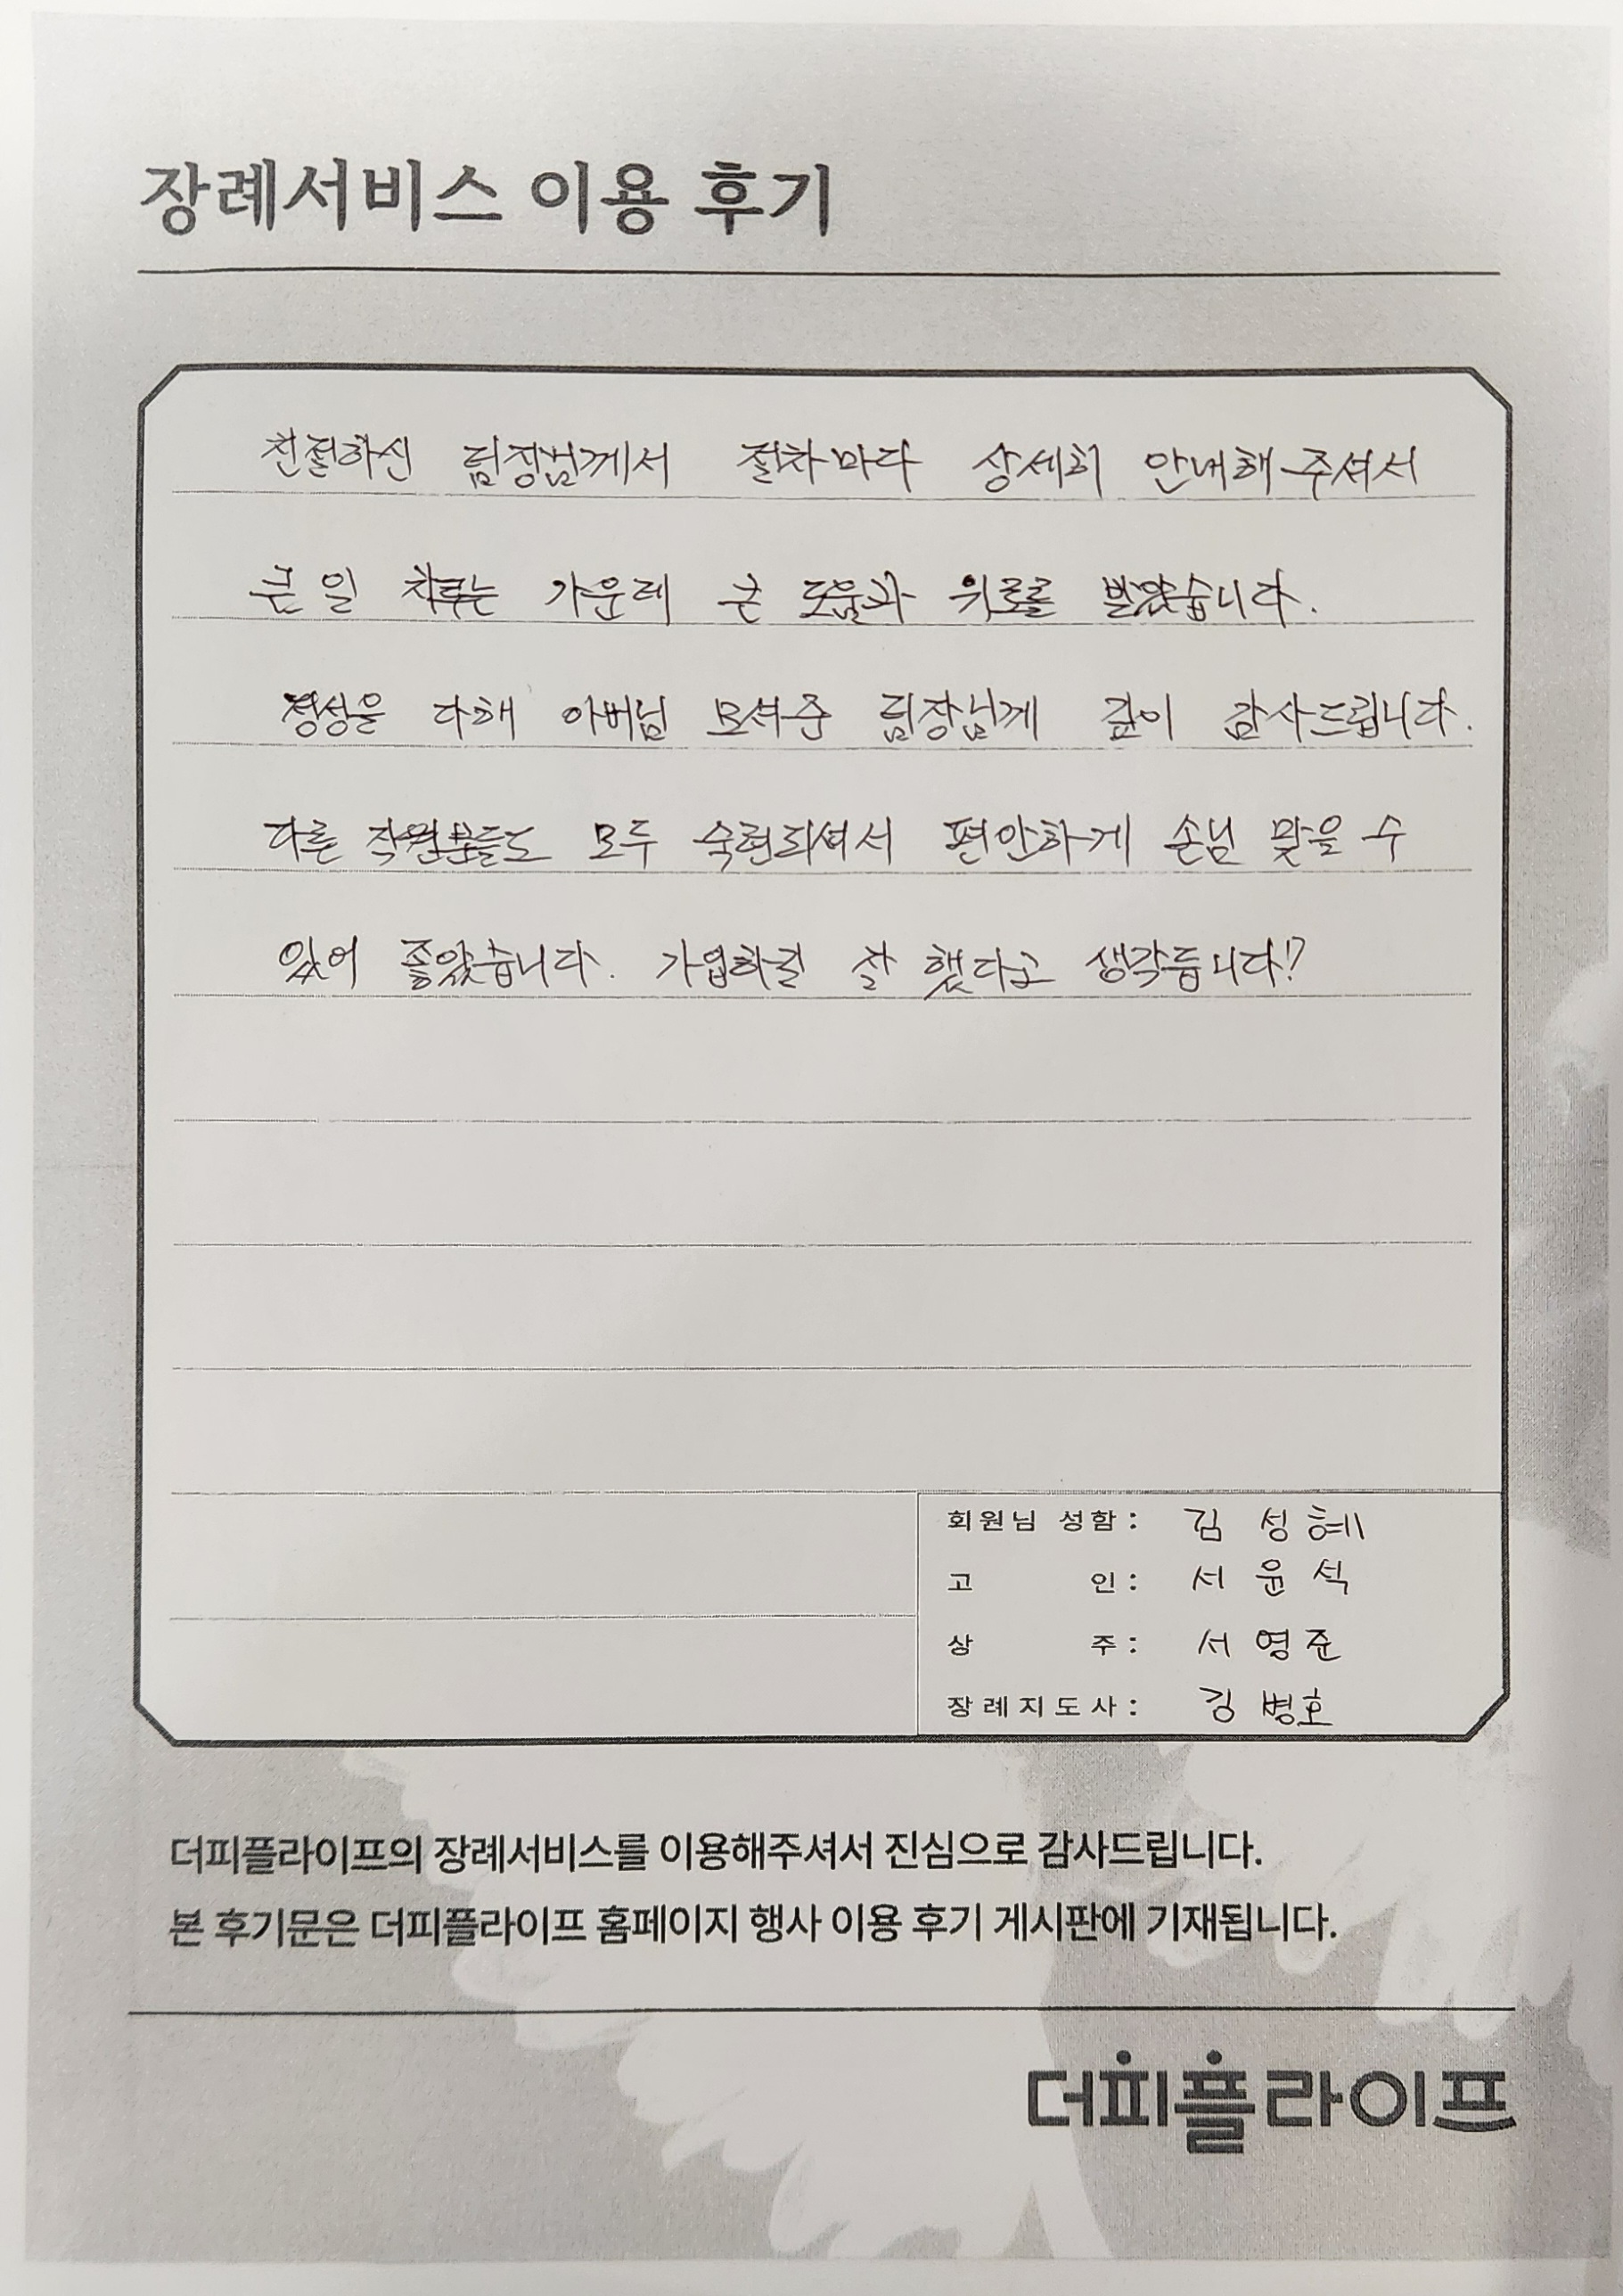 장례서비스 이용 후기
친절하신 팀장님께서 절차마다 상세히 안내해 주셔서
큰 일 치루는 가운데 큰 도움과 위로를 받았습니다.
정성을 다해 아버님 모셔준 팀장님께 깊이 감사드립니다.
다른 직원분들도 모두 숙련되셔서 편안하게 손님 맞을 수
있어 좋았습니다. 가입하길 잘 했다고 생각듭니다!
회원님 성함: 김성혜
고 인: 서윤석
상 주: 서영준
장례지도사: 김병호
더피플라이프의 장례서비스를 이용해주셔서 진심으로 감사드립니다.
본 후기문은 더피플라이프 홈페이지 행사 이용 후기 게시판에 기재됩니다.
더피플라이프